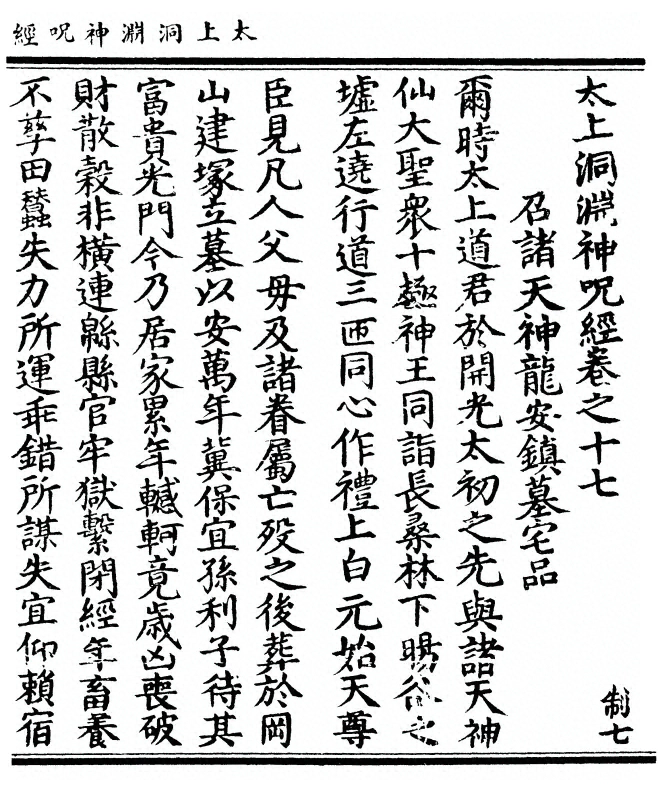 太上洞淵神呪經
太上洞淵神呪經卷之十七
制七
召諸天神龍安鎮墓宅品
爾時太上道君於開光太初之先與諸天神
仙大聖衆十極神王同詣長桑林下暘谷之
墟左遶行道三匝同心作禮上白元始天尊
臣見凡人父母及諸眷屬亡殁之後葬於岡
山建塚立墓以安萬年冀保宜孫利子待其
富貴光門今乃居家累年轗軻竟歲凶喪破
財散穀非橫連緜縣官牢獄繫閉經年畜養
不孳田蠶失力所運乖錯所謀失宜仰賴宿